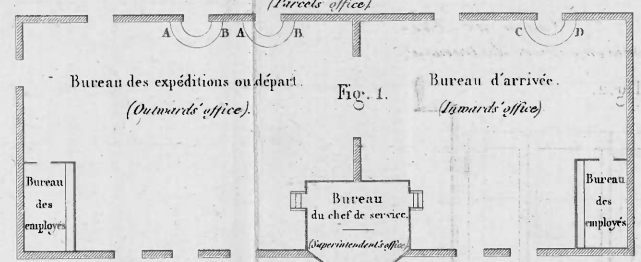 (Parcels office)
A B A B C D
Bureau des expéditions ou départ.
(Outwards' office).
Fig. 1.
Bureau d'arrivée.
(Inwards' office)
Bureau
des
employés
Bureau
du chef de service.
(Superintendent's office)
Bureau
des
employés